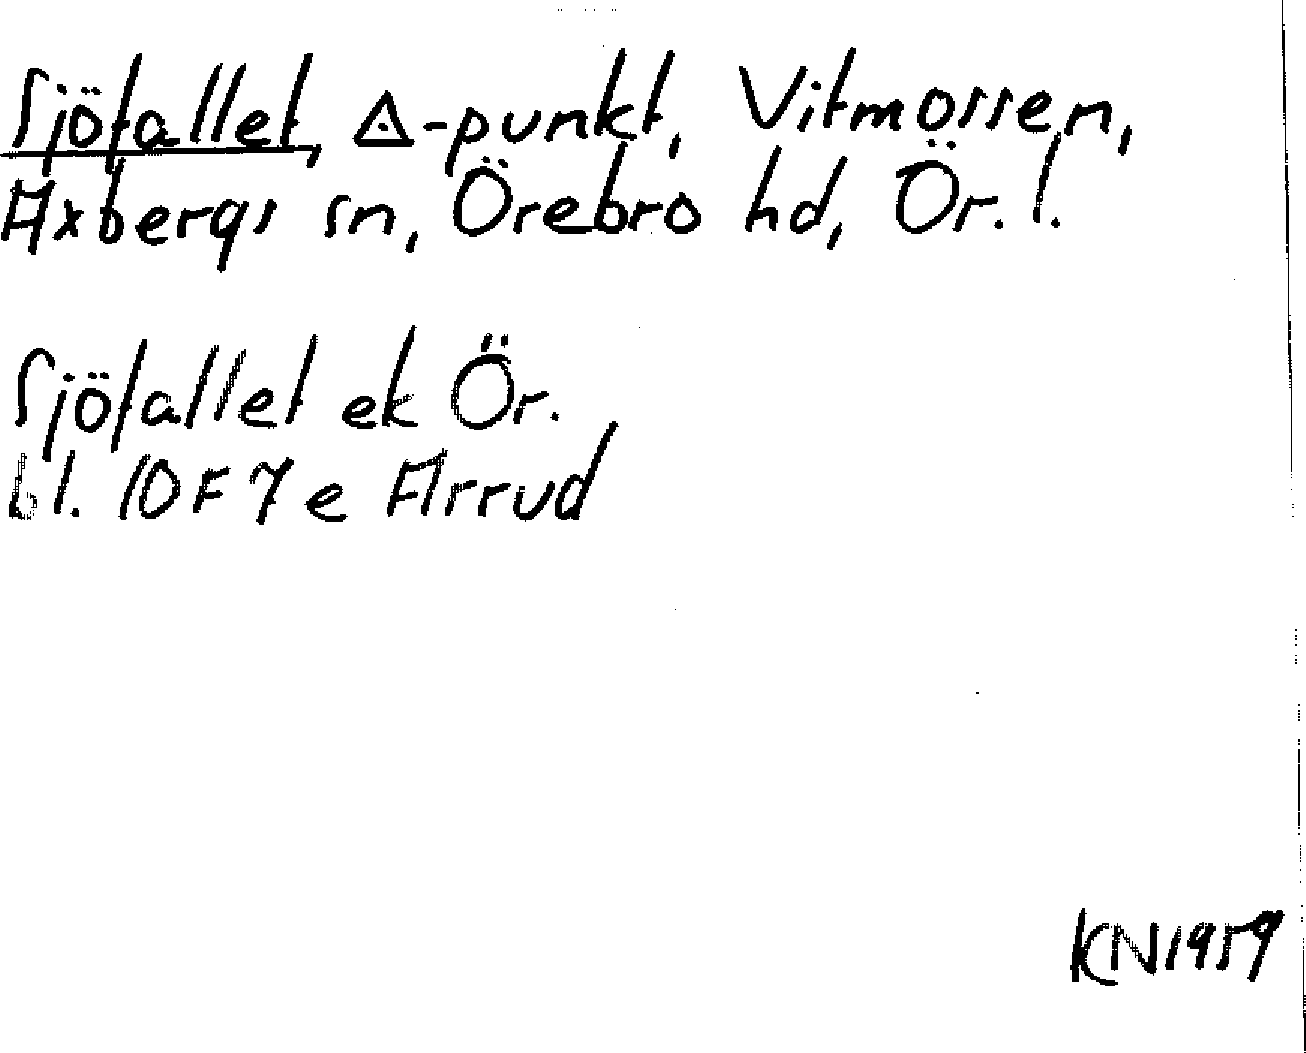 Sjöfallet, △-punkt, Vitmossen,
Axbergs sn, Örebro hd, Ör. l.
Sjöfallet ek Ör.
bl. 10F7e Arrud
KN1959